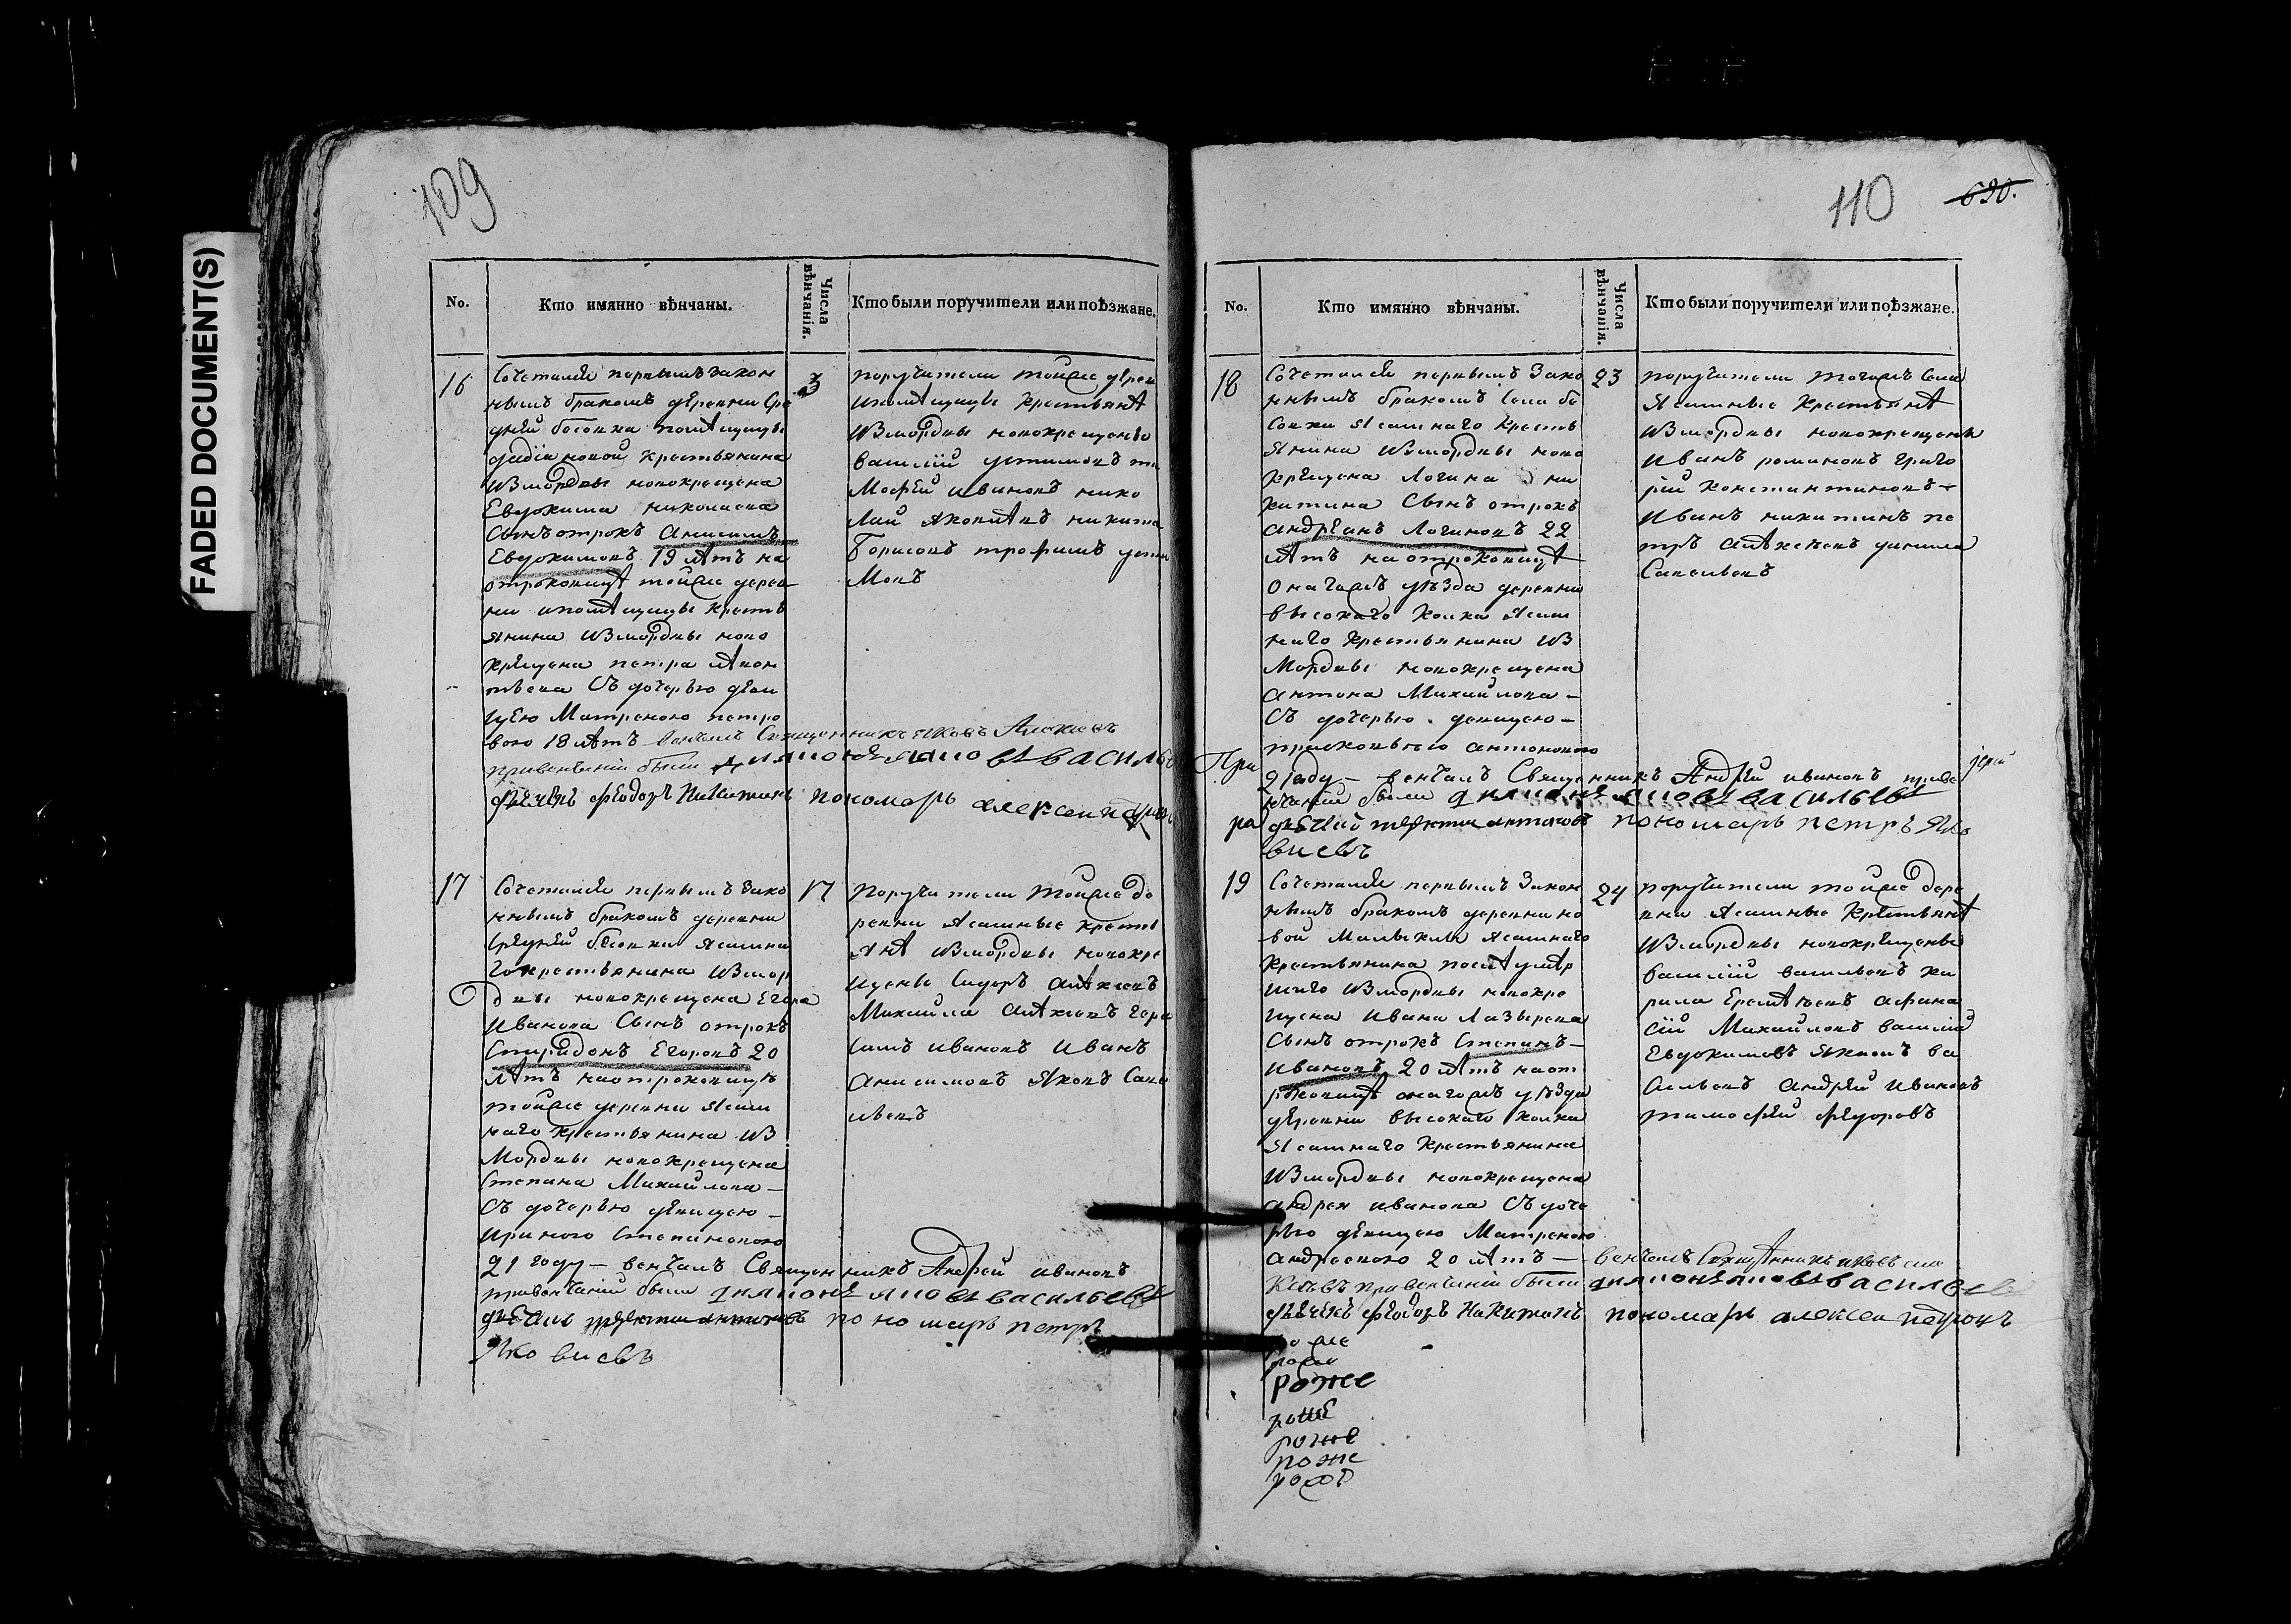 FADED DOCUMENT(S)
109
No.
Кто имянно вѣнчаны.
Числа вѣнчанія.
Кто были поручители или поѣзжане.
16
Сочетался первымъ закон
нымъ бракомъ деревни Сре
дней бесовки помѣщицы
крестьянина
Измордвы новокрещена
Евдокима николаева
Сынъ отрокъ Анисимъ
Евдокимовъ 19 лѣтъ на
отроковицѣ тойже дерев
ни ипомѣщицы кресть
янина Измордвы ново
крещена петра
Съ дочерью деви
цею Матреною петро
вою 18 лѣтъ венчалъ Священникъ яковъ
привенчаніи были диаконъ яковъ василье
дьячекъ феодоръ Никитинъ пономарь алексеи
3
поручители тойже дерев
ипомѣщицы крестьянѣ
Измордвы новокрещены
василій устимовъ ти
мофей ивановъ нико
лай яковлевъ никита
Борисовъ трофимъ усти
мовъ
17
Сочетался первымъ зако
ннымъ бракомъ деревни
Средней бесовки ясашна
го крестьянина Измор
двы новокрещена Егора
Иванова Сынъ отрокъ
Спиридонъ Егоровъ 20
лѣтъ наотроковицѣ
тойже деревни ясаш
наго крестьянина из
Мордвы новокрещена
Степана Михайлова –
Съ дочерью девицею –
ириною Степановою
21 году – венчалъ Священникъ Андрей ивановъ
привенчаніи были диаконъ яковъ васильевъ
пономарь петръ
Яковлевъ
17
Поручители тойже де
ревни Ясашные кресть
янѣ Измордвы новокре
щены Сидоръ алѣксеевъ
Михайла алѣксеевъ гера
симъ ивановъ иванъ
Анисимовъ Яковъ Саве
льевъ
110
620.
No.
Кто имянно вѣнчаны.
Числа вѣнчанія.
Кто были поручители или поѣзжане.
18
Сочетался первымъ Зако
ннымъ бракомъ Села бе
Совки ясашнаго кресть
янина Измордвы ново
крещена Логина ни
китина Сынъ отрокъ
андреанъ Логиновъ 22
лѣтъ на отроковицѣ
Онагожъ уѣзда деревни
высокаго колка ясаш
наго крестьянина из
Мордвы новокрещена
антона Михайлова –
Съ дочерью девицею –
антоновою
21 году – венчалъ Священникъ Андрей ивановъ приве
нчаніи были диаконъ яковъ васильевъ
пономарь петръ Яко
влевъ
23
поручители тогожъ Села
Ясашные крестьянѣ
Измордвы новокрещены
Иванъ романовъ григо
рій константиновъ –
Иванъ никитинъ пе
тръ алѣксѣевъ данила
Савельевъ
19
Сочетался первымъ Закон
нымъ бракомъ деревни но
вой Малыклы Ясашнаго
крестьянина послѣ умѣр
шаго Измордвы новокре
щена Ивана Лазырева
Сынъ отрокъ Степанъ –
Ивановъ 20 лѣтъ наот
роковицѣ онагожъ уѣзда
деревни высокаго колка
Ясашнаго крестьянина
Измордвы новокрещена
андрея иванова Съ доче
рью девицею Матреною
андреевою 20 лѣтъ – венчалъ Священникъ яковъ але
ксѣевъ привенчаніи были диаконъ яковъ васильевъ
дьячекъ феодоръ Никитинъ пономарь алексеи петровъ
24
поручители тойже дере
вни Ясашные крестьянѣ
Измордвы новокрещены
василій васильевъ ки
рила Еремѣевъ афана
сій Михайловъ василій
Евдокимовъ якимъ ва
сильевъ андрей ивановъ
тимофей федоровъ
роже
роже
роже
роже
роже
роже